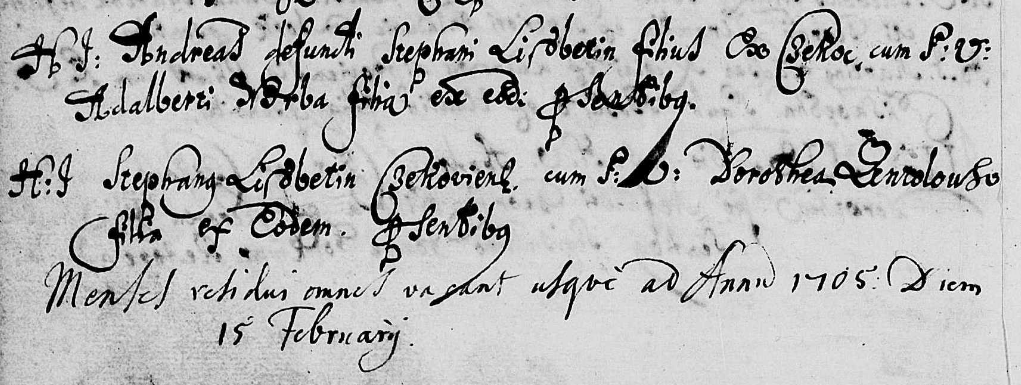 H: I: Andreas defuncti Stephani Lisobetin filius Ex Czekoc, cum P: V:
Adalberti Vrba filia ex eod: psentibq.
H: I Stephanq Lisobetin Czekoviens. cum P: V: Dorothea
filia ex Eodem. psentibq
Menses residui omnes vacant usque ad Annū 1705. Diem
15 Februarij.